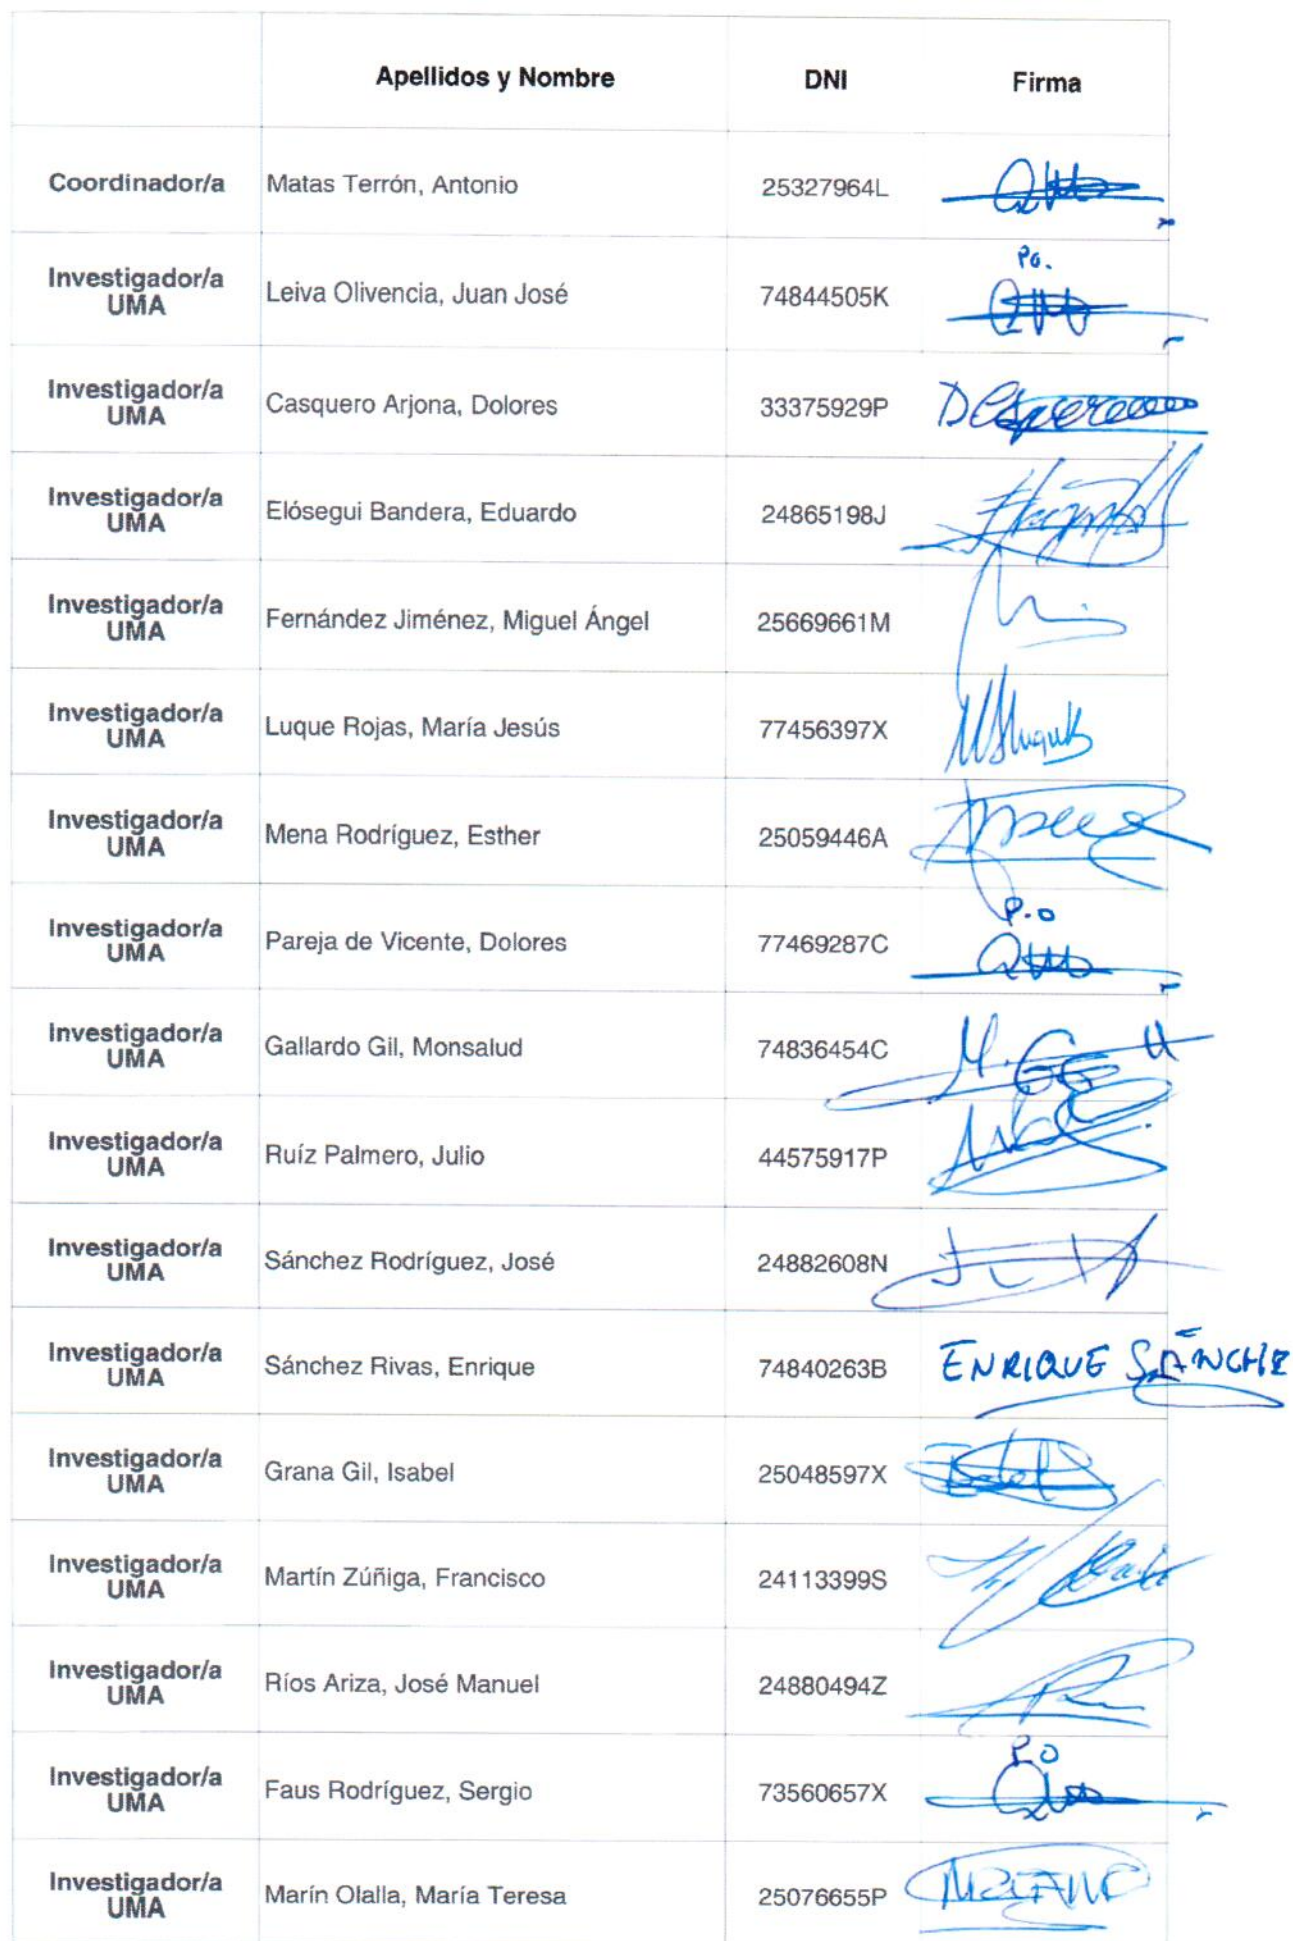 Apellidos y Nombre DNI Firma
Coordinador/a Matas Terrón, Antonio 25327964L
Po.
Investigador/a
UMA Leiva Olivencia, Juan José 74844505K
Investigador/a
UMA Casquero Arjona, Dolores 33375929P
Investigador/a
UMA Elósegui Bandera, Eduardo 24865198J
Investigador/a
UMA Fernández Jiménez, Miguel Ángel 25669661M
Investigador/a
UMA Luque Rojas, María Jesús 77456397X
Investigador/a
UMA Mena Rodríguez, Esther 25059446A
P.O
Investigador/a
UMA Pareja de Vicente, Dolores 77469287C
Investigador/a
UMA Gallardo Gil, Monsalud 74836454C
Investigador/a
UMA Ruíz Palmero, Julio 44575917P
Investigador/a
UMA Sánchez Rodríguez, José 24882608N
Investigador/a
UMA Sánchez Rivas, Enrique 74840263B ENRIQUE SÁNCHEZ
Investigador/a
UMA Grana Gil, Isabel 25048597X
Investigador/a
UMA Martín Zúñiga, Francisco 24113399S
Investigador/a
UMA Ríos Ariza, José Manuel 24880494Z
P.O
Investigador/a
UMA Faus Rodríguez, Sergio 73560657X
Investigador/a
UMA Marín Olalla, María Teresa 25076655P